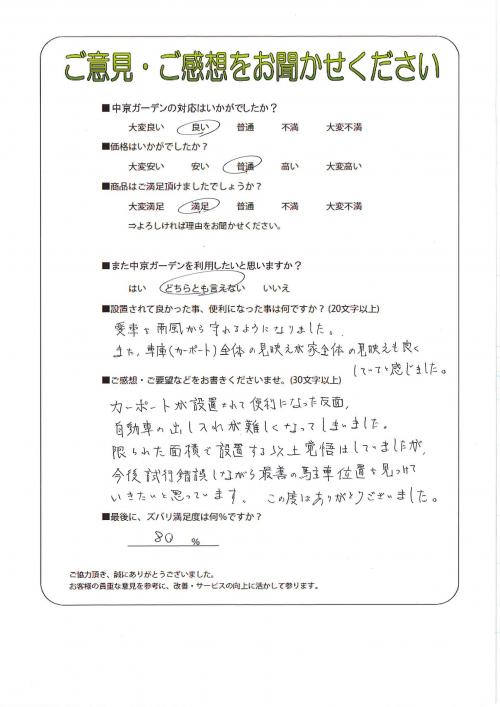 ご意見・ご感想をお聞かせください
■中京ガーデンの対応はいかがでしたか？
大変良い 良い 普通 不満 大変不満
■価格はいかがでしたか？
大変安い 安い 普通 高い 大変高い
■商品はご満足頂けましたでしょうか？
大変満足 満足 普通 不満 大変不満
⇒よろしければ理由をお聞かせください。
■また中京ガーデンを利用したいと思いますか？
はい どちらとも言えない いいえ
■設置されて良かった事、便利になった事は何ですか？(20文字以上)
愛車を雨風から守れるようになりました。
また、車庫(カーポート)全体の見映えが家全体の見映えも良く
していると感じました。
■ご感想・ご要望などをお書きくださいませ。(30文字以上)
カーポートが設置されて便利になった反面、
自動車の出し入れが難しくなってしまいました。
限られた面積で設置する以上覚悟はしていましたが、
今後試行錯誤しながら最善の駐車位置を見つけて
いきたいと思っています。 この度はありがとうございました。
■最後に、ズバリ満足度は何%ですか？
80 %
ご協力頂き、誠にありがとうございました。
お客様の貴重な意見を参考に、改善・サービスの向上に活かして参ります。